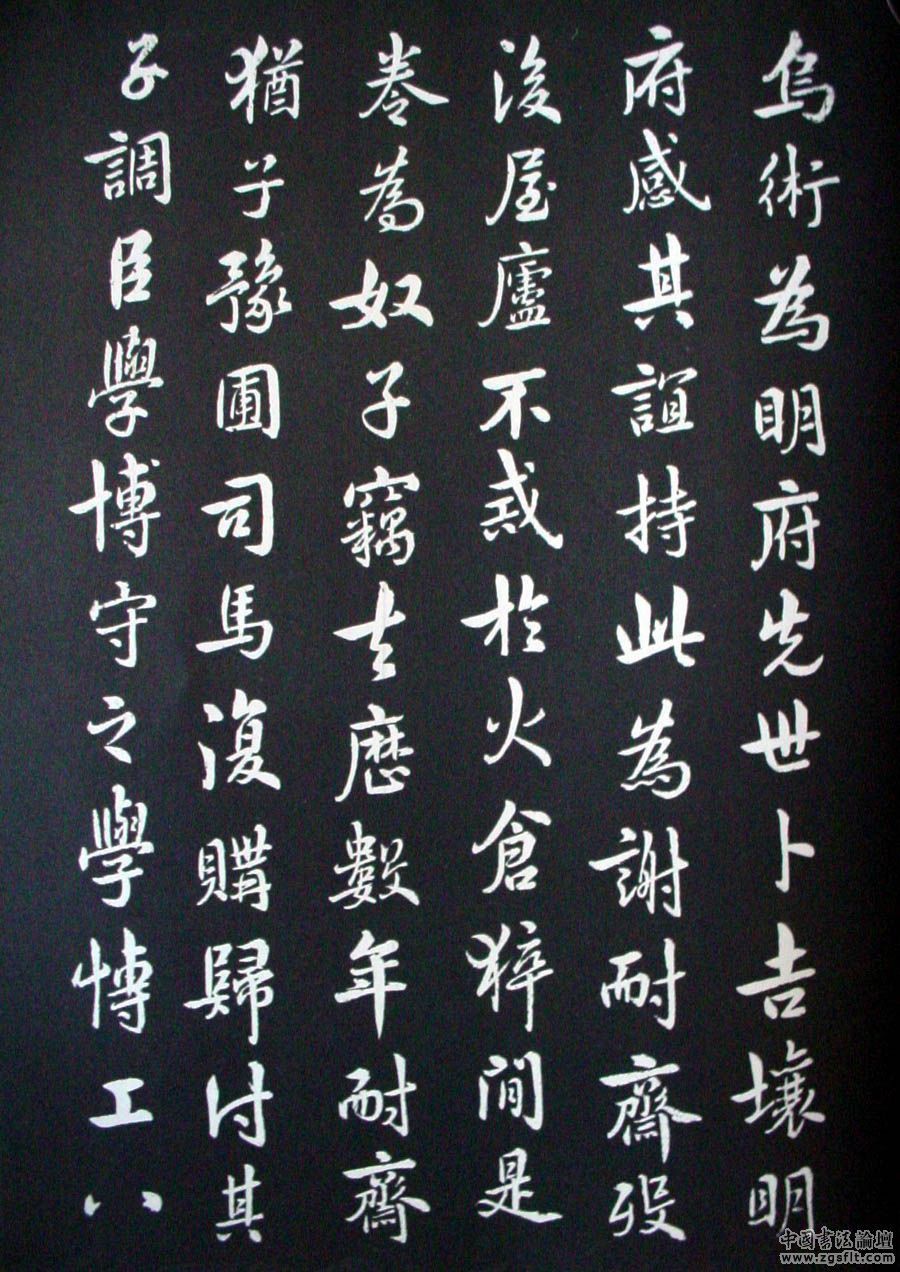 烏術為明府先世卜吉壤明
府感其誼持此為謝耐齋歿
後屋廬不戒於火倉猝間是
卷為奴子竊去歷數年耐齋
猶子豫圃司馬復購歸付其
子調臣學博守之學博工八
中國書法論壇
www.zgsflt.com